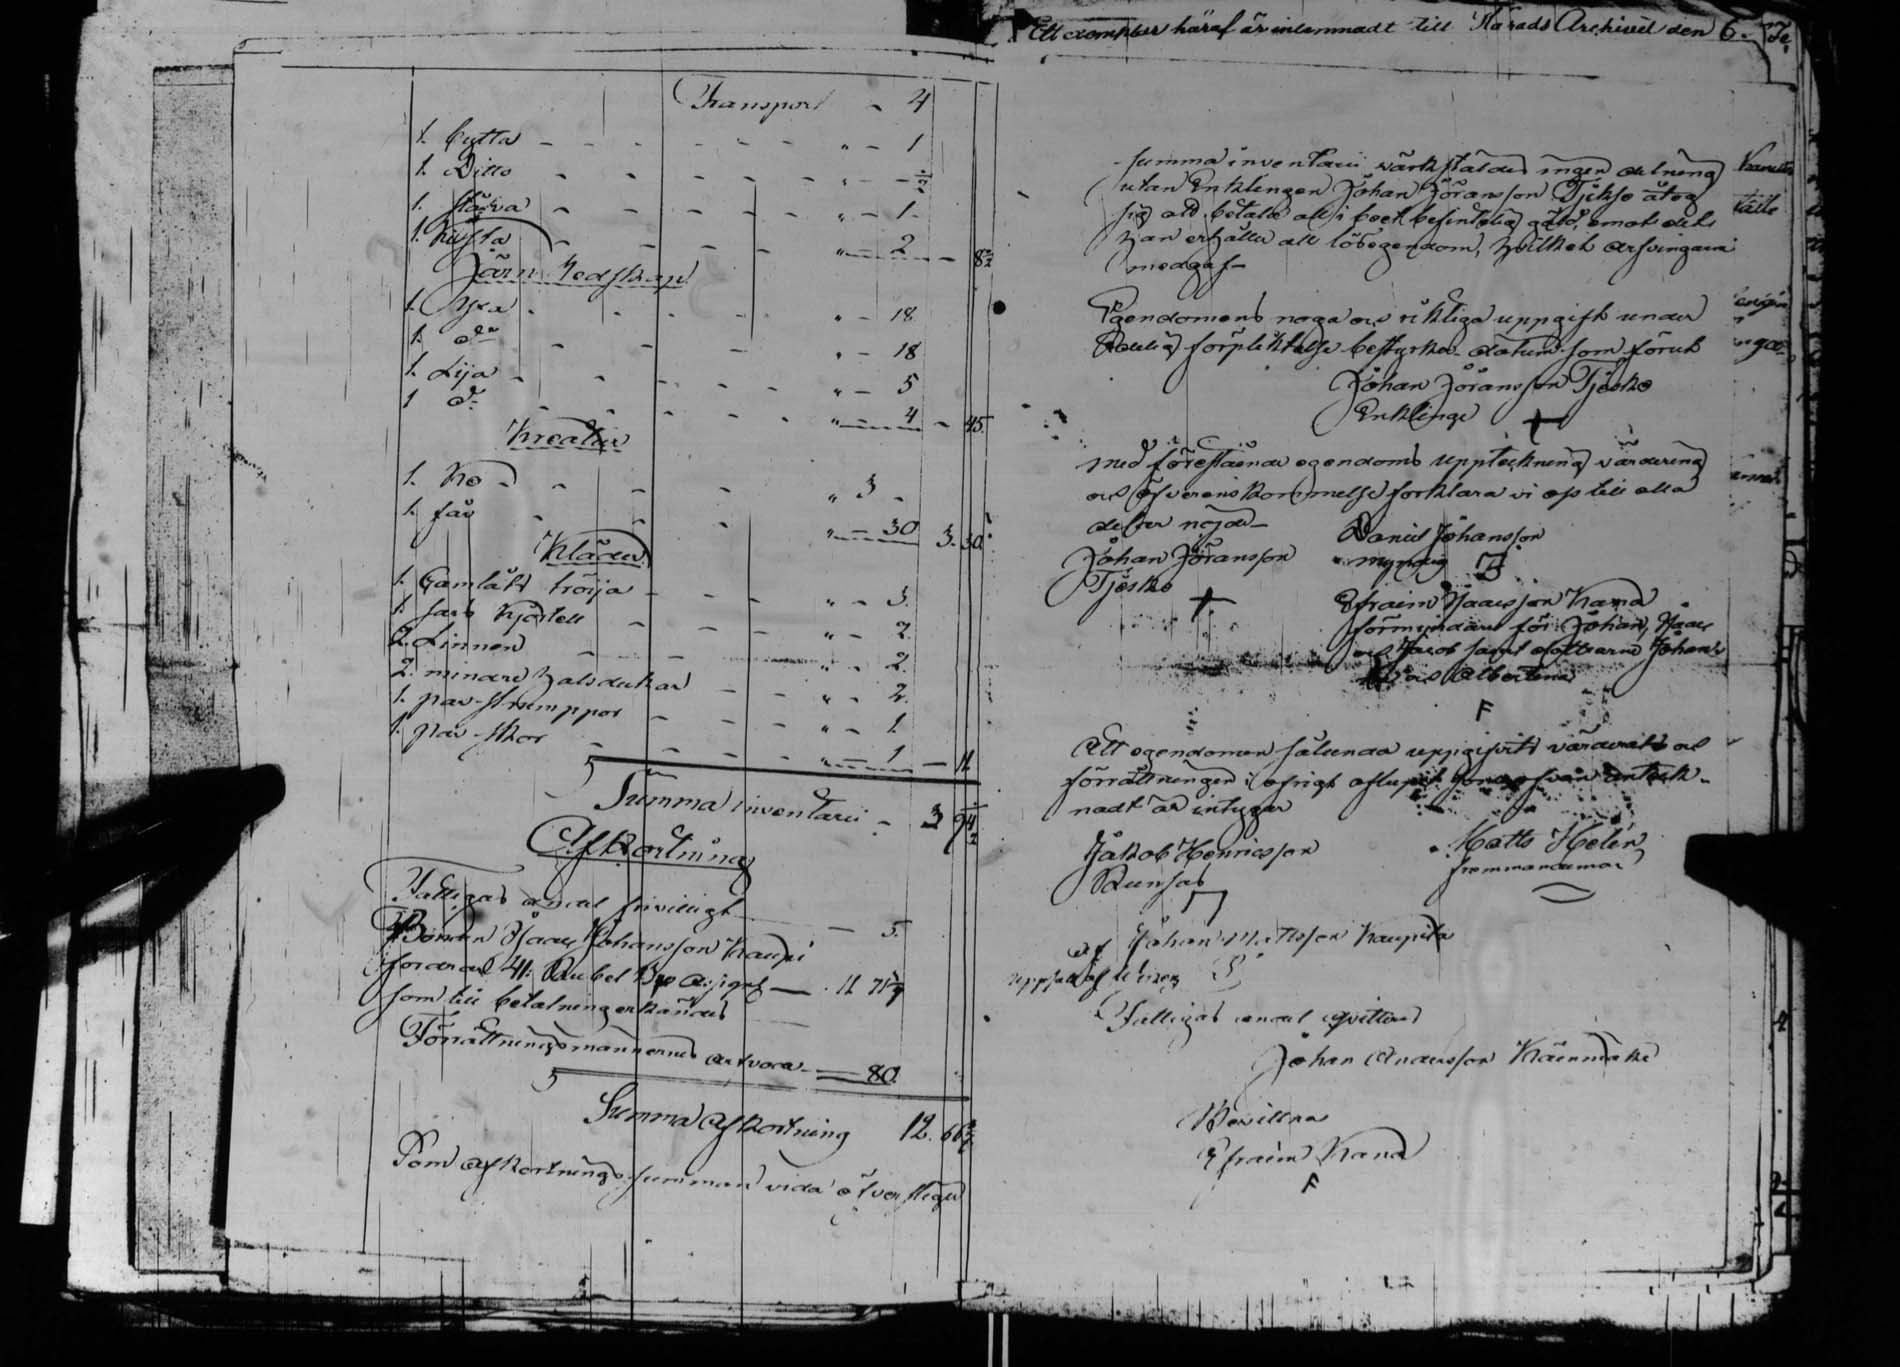 Transport - 4
1. bytta - - - - - " - 1
1. Ditto - - - - - " - - ½
1. stäfva - - - - - " - 1.
1. kista - - - - " - 2 - 8½
Järn Redskap
1. Yxa - - - - " - 18
1. do - - - " - 18
1. Lija - - - - - " - 5
1 do - - - - " - 4 - 45.
Kreatur
1. Ko - - - - " 3 -
1. får - - - " - 30 3. 30.
Kläder
1. Gamlakt tröija - - - " - 3.
1. sars Kjortell - - - " - 2.
2. Linnen - - " - 2.
2. mindre halsdukar - - " - 2.
1. par strumppor - - - " - 1.
1. par skor - - - - " - 1 - 11
Summa inventarii - 3 94½
Afkortning
Fattigas andel frivilligt - 5.
Bonden Isaac Johansson Kauppi
fordrad 41. Rubel Bco Assignt - 11 71 3/7
som till betalning erkändes
Förrättningsmännernes arfvode - 80.
Summa Afkortning 12. 66 3/7
Som Afkortnings summan vida öfverstiger
Ett exemplar häraf är inlemnadt till Härads Archivet den 6. Fe
summa inventarii värkstäldes ingen delning
utan Enklingen Johan Jöransson Tjesko åtog
sig att betala all i boet befintelig gäld, emot det
han erhåller all lösegendom, hvilket arfvingarne
medgaf -
Egendomens noga och riktiga uppgift under
Edelig förpliktelse bestyrker datum som förut
Johan Jöransson Tjesko
Enklinge +
Med förestående egendoms uppteckning värdering
och öfverenskommelse förklara vi oss till alla
delar nöjde -
Johan Jöransson
Tjesko +
Daniel Johansson
myndig
Efraim Isaacsson Kana
förmyndare för Johan, Isaac
och Jacob samt dottrarne Johanna
och Albertina
F
Att egendomen sålunda uppgifvits värderats och
förrättningen i öfrigt aflupit som ofvan anteck-
nadt är intygar
Jakob Henricsson
Runsas
Matts Helén
fremmandeman
af Johan Mattsson Kaupila
Fattigas andel qvitteras
Johan Andersson
Bevittna
Efraim Kana
F